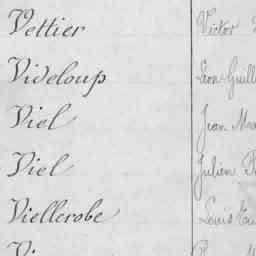 Vettier Victor
Videloup Léon Guill
Viel Jean Ma
Viel Julien
Viellerobe Louis